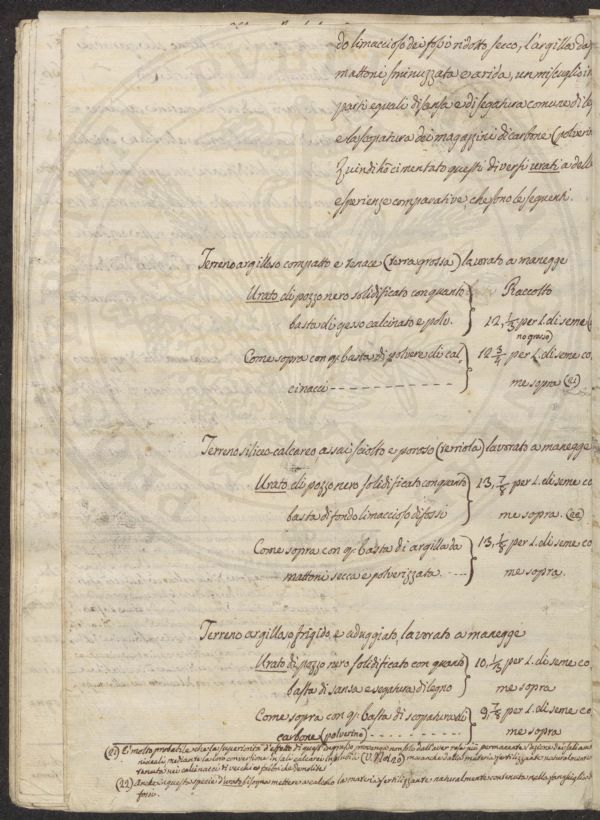 do limaccioso dei fossi ridotto secco, l'argilla da
mattoni sminuzzata e arida, un miscuglio in
parti eguali di sansa e di segatura comune di le
e la scopatura dei magazzini di carbone (polverin
Quindi hò cimentato questi diversi urati a delle
esperienze comparative, che sono le seguenti.
Terreno argilloso compatto e tenace (terra grossa) lavorato a manegge
Urato di pozzo nero solidificato con quanto
basta di gesso calcinato e polv.
Raccolto
12, 1/3 per l. di seme (
no grosso)
Come sopra con q: basta di polvere di cal
cinacci
12 3/4 per l. di seme co
me sopra (21)
Terreno siliceo-calcareo assai sciolto e poroso (terriola) lavorato a manegge
Urato di pozzo nero solidificato con quanto
basta di fondo limaccioso di fossi
13, 7/8 per l. di seme co
me sopra. (22)
Come sopra con q: basta di argilla da
mattoni secca e polverizzata.
13, 1/8 per l. di seme co
me sopra.
Terreno argilloso frigido, e aduggiato, lavorato a manegge
Urato di pozzo nero solidificato con quanto
basta di sansa e segatura di legno
10, 1/3 per l. di seme co
me sopra
Come sopra con q: basta di scopatura di
carbone (polverino)
9, 7/8 per l. di seme co
me sopra
(21) E' molto probabile che la superiorità d'effetto di quest'ingrasso provenga non solo dall'aver resa più permanente l'azione dei sali am
moniacali, mediante la loro conversione in sali calcarei
tenuta nei calcinacci di vecchie fabbriche demolite
(22) Anche in questa specie d'urato bisogna mettere a calcolo la materia fertilizzante naturalmente contenuta nella fanghiglia d
fossi.